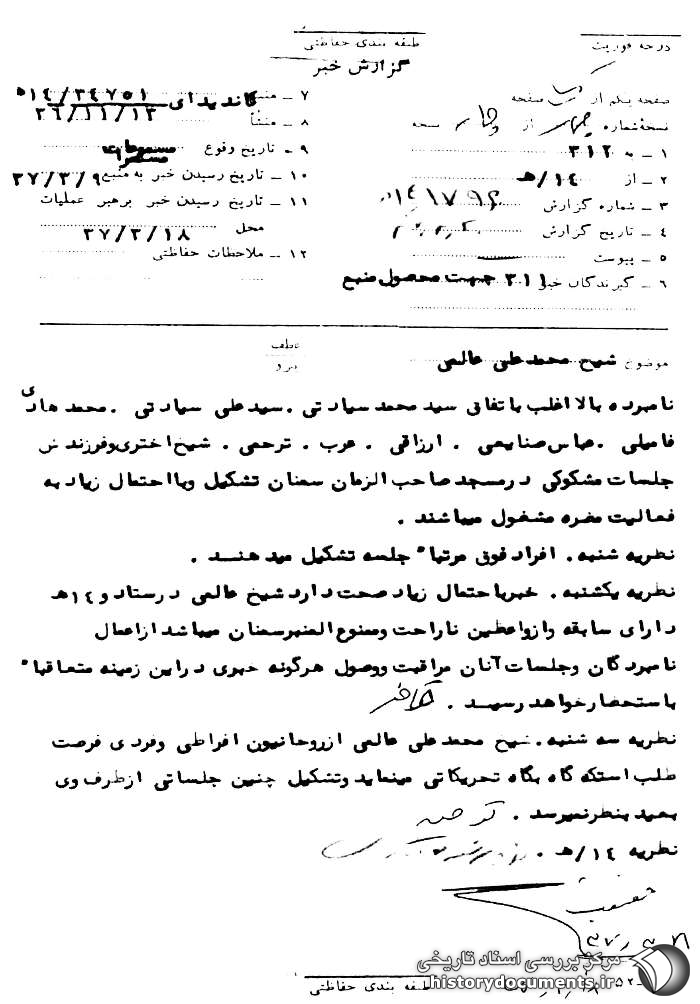 درجه فوریت
طبقه بندی حفاظتی
گزارش خبر
صفحه یکم از یک صفحه
نسخه شماره چهار از چهار نسخه
۱ ــ به ۳۱۲
۲ ــ از ۱۴/هـ
۳ ــ شماره گزارش
۴ ــ تاریخ گزارش
۵ ــ پیوست
۶ ــ گیرندگان خبر ۳۱۱ جهت محصول منبع
۷ ــ منبع کاندیدای ۱۴/۳۴۷۵۱
۸ ــ منشأ ۲۶/۱۱/۱۳
۹ ــ تاریخ وقوع
۱۰ ــ تاریخ رسیدن خبر به منبع ۳۷/۳/۹
۱۱ ــ تاریخ رسیدن خبر برهبر عملیات
محل ۳۷/۳/۱۸
۱۲ ــ ملاحظات حفاظتی
موضوع شیخ محمدعلی عالمی
عطف
پیرو
نامبرده بالا اغلب باتفاق سید محمد سیادتی . سیدعلی سیادتی . محمد هادی
فامیلی . عباس صنایعی . ارزاقی . عرب . ترحمی . شیخ اختری وفرزندش
جلسات مشکوکی درمسجد صاحب الزمان سمنان تشکیل وبااحتمال زیاد به
فعالیت مضره مشغول میباشند .
نظریه شنبه . افراد فوق مرتباً جلسه تشکیل میدهنـد .
نظریه یکشنبه . خبرباحتمال زیاد صحت دارد شیخ عالمی درستاد و ۱۴هـ
دارای سابقه وازواعظین ناراحت وممنوع المنبرسمنان میباشد ازاعمال
نامبردگان وجلسات آنان مراقبت ووصول هرگونه خبری دراین زمینه متعاقباً
باستحضارخواهد رسیـد .
نظریه سه شنبه . شیخ محمدعلی عالمی ازروحانیون افراطی وفردی فرصت
طلب استکه گاه بگاه تحریکاتی مینماید وتشکیل چنین جلساتی ازطرف وی
بعید بنظرنمیرسد .
نظریه ۱۴/هـ .
طبقه بندی حفاظتی
مرکز بررسی اسناد تاریخی
historydocuments.ir